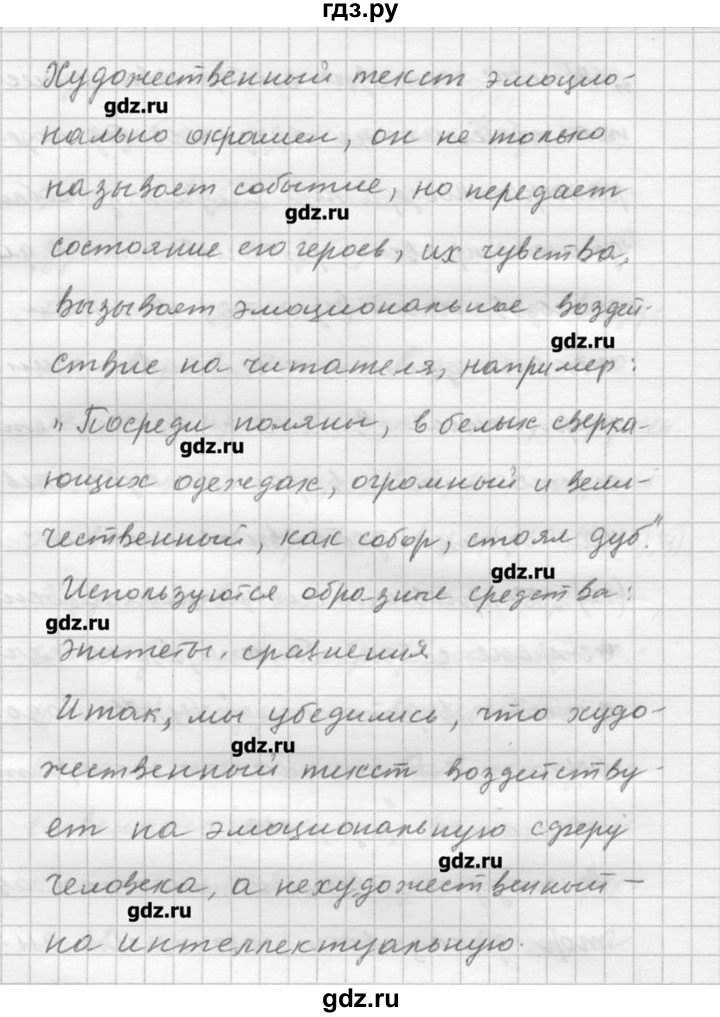 гдз.ру
Художественный текст эмоцио-
gdz.ru
нально окрашен, он не только
называет событие, но передает
gdz.ru
состояние его героев, их чувства,
вызывает эмоциональное воздей-
gdz.ru
ствие на читателя, например:
"Посреди поляны, в белых сверка-
gdz.ru
ющих одеждах, огромный и вели-
чественный, как собор, стоял дуб."
gdz.ru
Используются образные средства:
gdz.ru
эпитеты, сравнения
Итак, мы убедились, что худо-
gdz.ru
жественный текст воздейству-
ет на эмоциональную сферу
gdz.ru
человека, а нехудожественный -
gdz.ru
на интеллектуальную.
gdz.ru